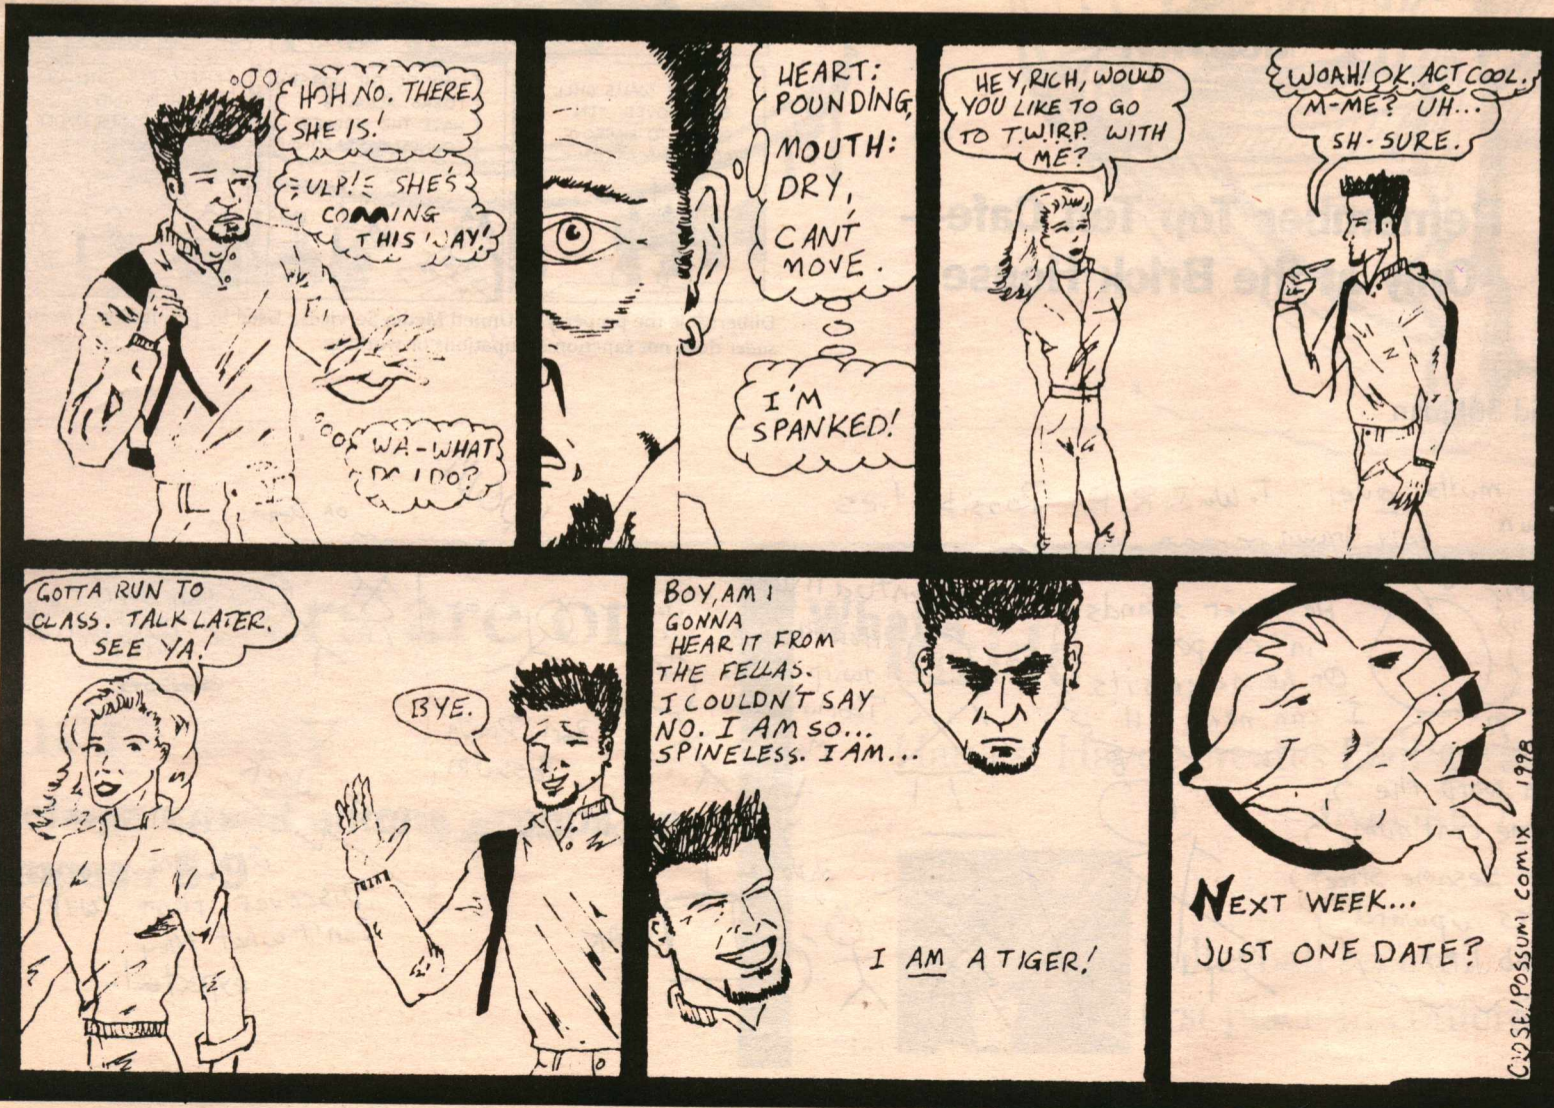 HOH NO. THERE
SHE IS!
ULP! SHE'S
COMING
THIS WAY!
WA-WHAT
DO I DO?
HEART:
POUNDING,
MOUTH:
DRY,
CAN'T
MOVE.
I'M
SPANKED!
HEY, RICH, WOULD
YOU LIKE TO GO
TO T.W.I.R.P. WITH
ME?
WOAH! OK. ACT COOL.
M-ME? UH...
SH-SURE.
GOTTA RUN TO
CLASS. TALK LATER.
SEE YA!
BYE.
BOY, AM I
GONNA
HEAR IT FROM
THE FELLAS.
I COULDN'T SAY
NO. I AM SO...
SPINELESS. I AM...
I AM A TIGER!
NEXT WEEK...
JUST ONE DATE?
CLOSE/POSSUM COMIX 1998